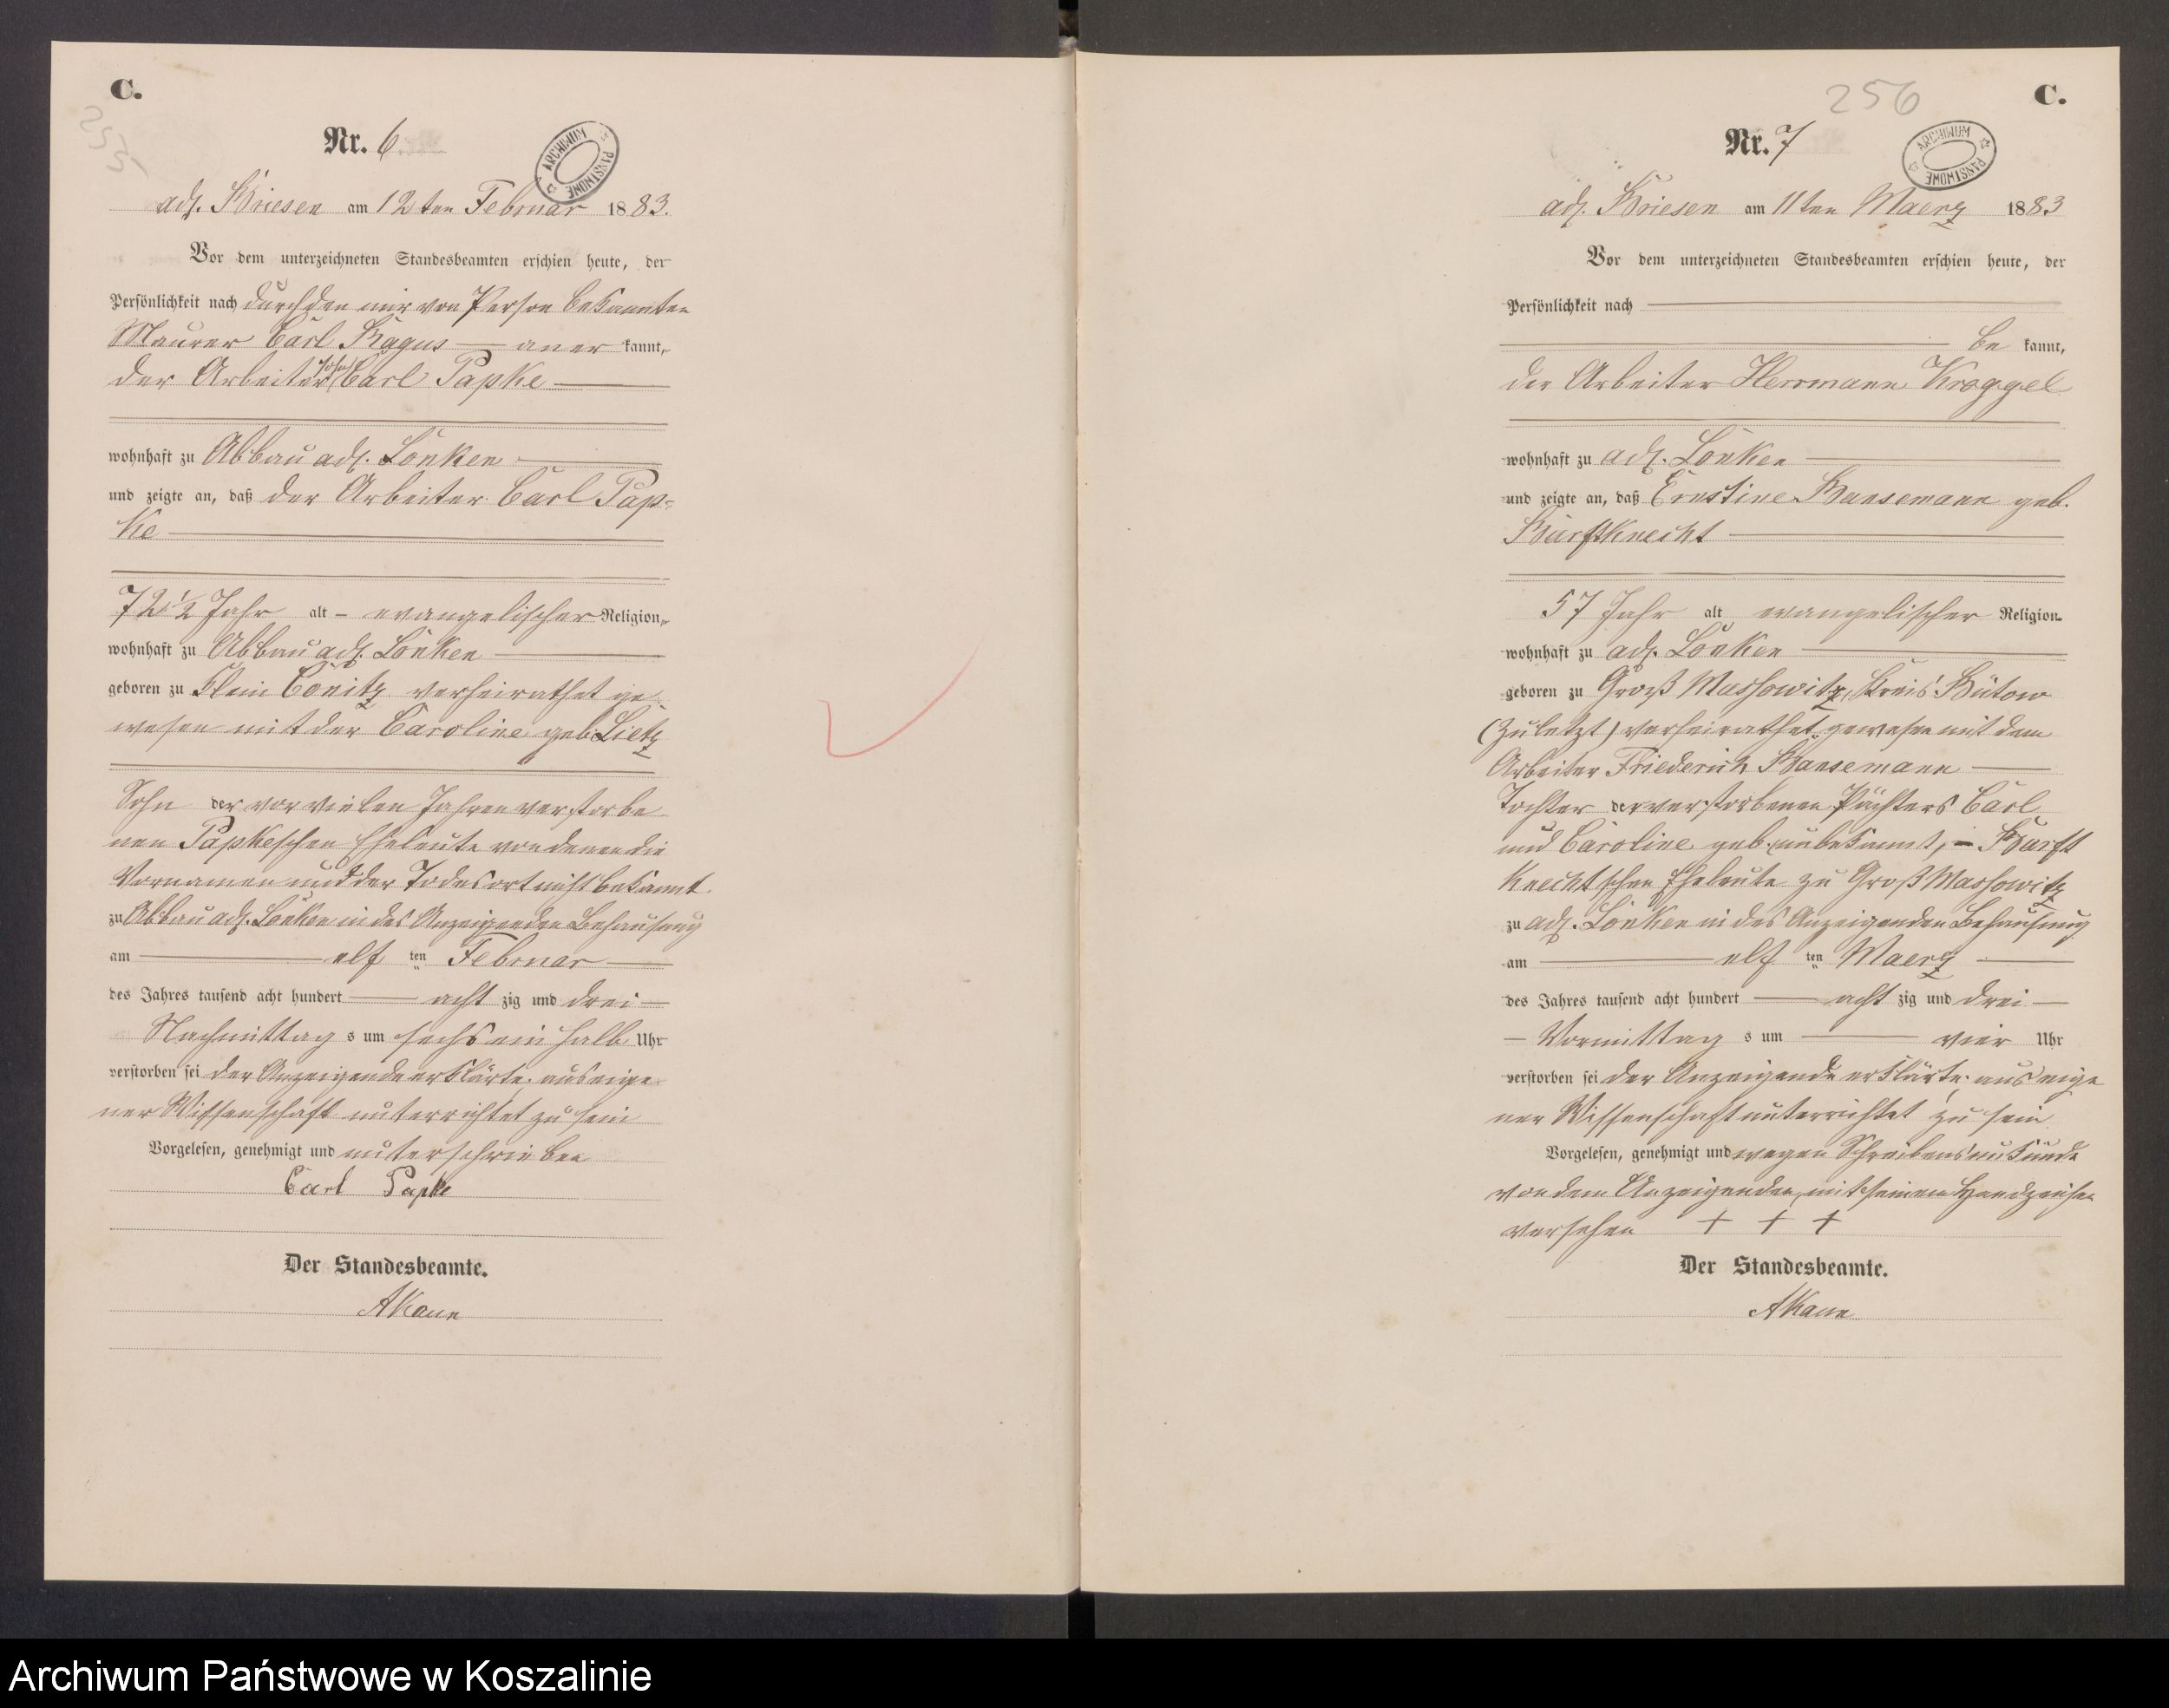 C.
255
Nr. 6.
ARCHIWUM PAŃSTWOWE
adl. Briesen am 12ten Februar 1883.
Vor dem unterzeichneten Standesbeamten erschien heute, der
Persönlichkeit nach durch den mir von Person bekannten
Maurer Carl Bagus — aner kannt,
der Arbeiter Carl Papke
wohnhaft zu Abbau adl. Lonken
und zeigte an, daß der Arbeiter Carl Pap-
ke
72 1/2 Jahr alt – evangelischer Religion,
wohnhaft zu Abbau adl. Lonken
geboren zu Klein Conitz verheirathet ge
wesen mit der Caroline geb. Lietz
Sohn der vor vielen Jahren verstorbe
nen Papkeschen Eheleute von denen die
Vornamen und der Todesort nicht bekannt
zu Abbau adl. Lonken in des Anzeigenden Behausung
am elf ten Februar
des Jahres tausend acht hundert acht zig und drei
Nachmittag s um sechs ein halb Uhr
verstorben sei der Anzeigende erklärte aus eige
ner Wissenschaft unterrichtet zu sein
Vorgelesen, genehmigt und unterschrieben
Carl Papke
Der Standesbeamte.
AKann
256
C.
Nr. 7
ARCHIWUM PAŃSTWOWE
adl. Briesen am 11ten Maerz 1883
Vor dem unterzeichneten Standesbeamten erschien heute, der
Persönlichkeit nach
be kannt,
der Arbeiter Herrmann Kroggel
wohnhaft zu adl. Lonken
und zeigte an, daß Ernstine Bansemann geb.
Burftknecht
57 Jahr alt evangelischer Religion
wohnhaft zu adl. Lonken
geboren zu Groß Massowitz, Kreis Bütow
(zuletzt) verheirathet gewesen mit dem
Arbeiter Friederich Bansemann
Tochter der verstorbenen Pächters Carl
und Caroline geb. (unbekannt) – Burft
knechtschen Eheleute zu Groß Massowitz
zu adl. Lonken in des Anzeigenden Behausung
am elf ten Maerz
des Jahres tausend acht hundert acht zig und drei
Vormittag s um vier Uhr
verstorben sei der Anzeigende erklärte aus eige
ner Wissenschaft unterrichtet zu sein
Vorgelesen, genehmigt und wegen Schreibensunkunde
von dem Anzeigenden mit seinem Handzeichen
versehen + + +
Der Standesbeamte.
AKann
Archiwum Państwowe w Koszalinie